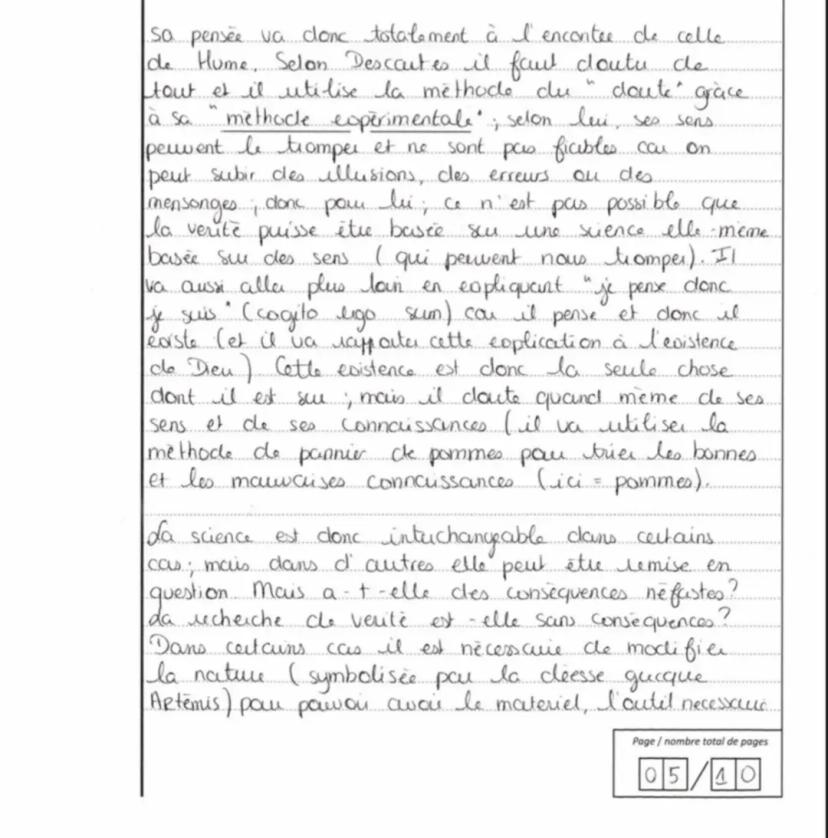 sa pensée va donc totalement à l'encontre de celle
de Hume. Selon Descartes il faut douter de
tout et il utilise la méthode du "doute" grâce
à sa "méthode expérimentale"; selon lui, ses sens
peuvent le tromper et ne sont pas fiables car on
peut subir des illusions, des erreurs ou des
mensonges; donc pour lui; ce n'est pas possible que
la verité puisse être basée sur une science elle-même
basée sur des sens (qui peuvent nous tromper). Il
va aussi aller plus loin en expliquant "je pense donc
je suis" (cogito ergo sum) car il pense et donc il
existe (et il va rapporter cette explication à l'existence
de Dieu) Cette existence est donc la seule chose
dont il est sur; mais il doute quand même de ses
sens et de ses connaissances (il va utiliser la
méthode de pannier de pommes pour trier les bonnes
et les mauvaises connaissances (ici = pommes).
La science est donc interchangeable dans certains
cas; mais dans d'autres elle peut être remise en
question. Mais a-t-elle des conséquences néfastes?
La recherche de verité est-elle sans conséquences?
Dans certains cas il est nécessaire de modifier
la nature (symbolisée par la déesse grecque
Artémis) pour pouvoir avoir le materiel, l'outil necessaire
Page / nombre total de pages
05/10